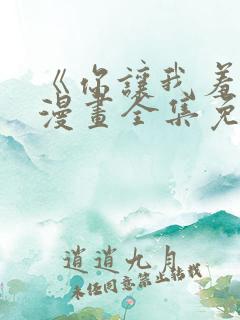 《你讓我羞
漫畫全集免
逍遙九月
未经同意禁止转载